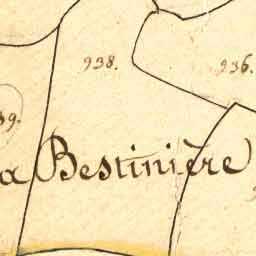 938.
936.
39.
a Bestinière